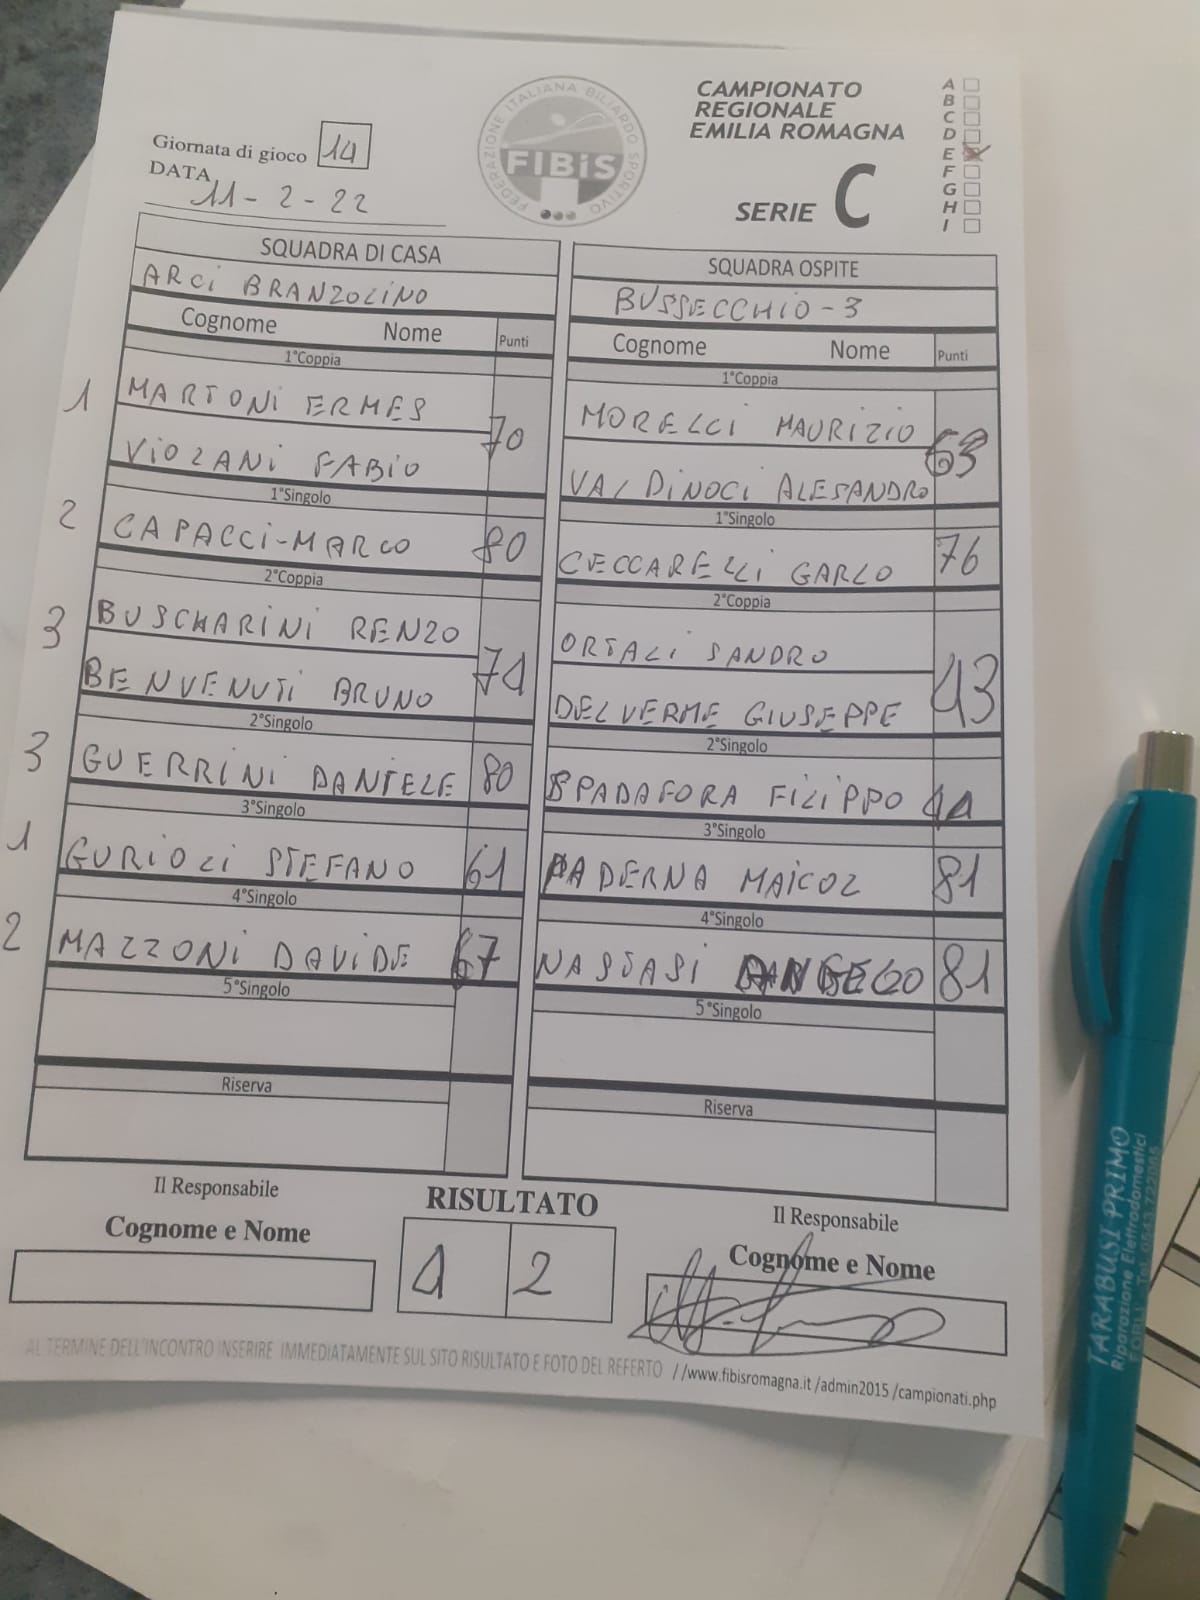 CAMPIONATO
REGIONALE
EMILIA ROMAGNA
SERIE C
A
B
C
D
E
F
G
H
I
FEDERAZIONE ITALIANA BILIARDO SPORTIVO
FIBiS
Giornata di gioco 14
DATA 11-2-22
SQUADRA DI CASA
ARCi BRANZOLINO
Cognome Nome Punti
1°Coppia
1 MARTONi ERMES
70
VIOLANi FABIO
1°Singolo
2 CAPACCI-MARCO 80
2°Coppia
3 BUSCHARINI RENZO
71
BENVENUTI BRUNO
2°Singolo
3 GUERRINI DANIELE 80
3°Singolo
1 GURIOLI STEFANO 61
4°Singolo
2 MAZZONI DAVIDE 67
5°Singolo
Riserva
SQUADRA OSPITE
BUSSECCHIO-3
Cognome Nome Punti
1°Coppia
MORELLI MAURIZIO
VALDINOCI ALESANDRO
1°Singolo
CECCARELLI GARLO 76
2°Coppia
ORTALI SANDRO
43
DELVERME GIUSEPPE
2°Singolo
SPADAFORA FILIPPO
3°Singolo
PADERNA MAICOL 81
4°Singolo
NASTASI ANGELO 81
5°Singolo
Riserva
Il Responsabile
Cognome e Nome
RISULTATO
2
Il Responsabile
Cognome e Nome
AL TERMINE DELL'INCONTRO INSERIRE IMMEDIATAMENTE SUL SITO RISULTATO E FOTO DEL REFERTO //www.fibisromagna.it /admin2015 /campionati.php
TARABUSI PRIMO
Riparazione Elettrodomestici